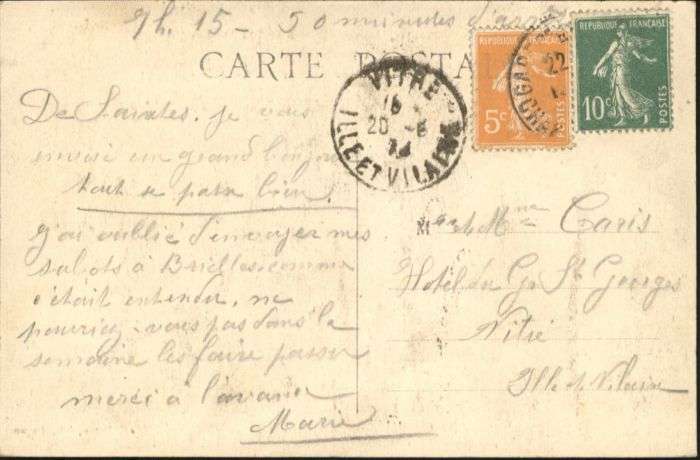 9h. 15 - 50 minutes
CARTE POSTA
RÉPUBLIQUE FRANÇAISE
5c
POSTES
RÉPUBLIQUE FRANÇAISE
10c
POSTES
GARE
22
VITRÉ
20 - 8
ILLE ET VILAINE
De Saintes, je vous
envoie un grand bonjour
tout se passe bien.
J'ai oublié d'envoyer mes
sabots à Brielles comme
c'était entendu, ne
pourriez-vous pas dans la
semaine les faire passer
merci à l'avance
Marie
M et Mme Caris
Hotel du Gd St Georges
Vitré
Ille et Vilaine